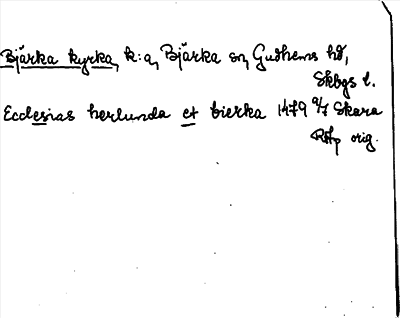 Bjärka kyrka, k:a, Bjärka sn, Gudhems hd,
Skbgs l.
Ecclesias herlunda et bierka 1479 9/7 Skara
RAp orig.